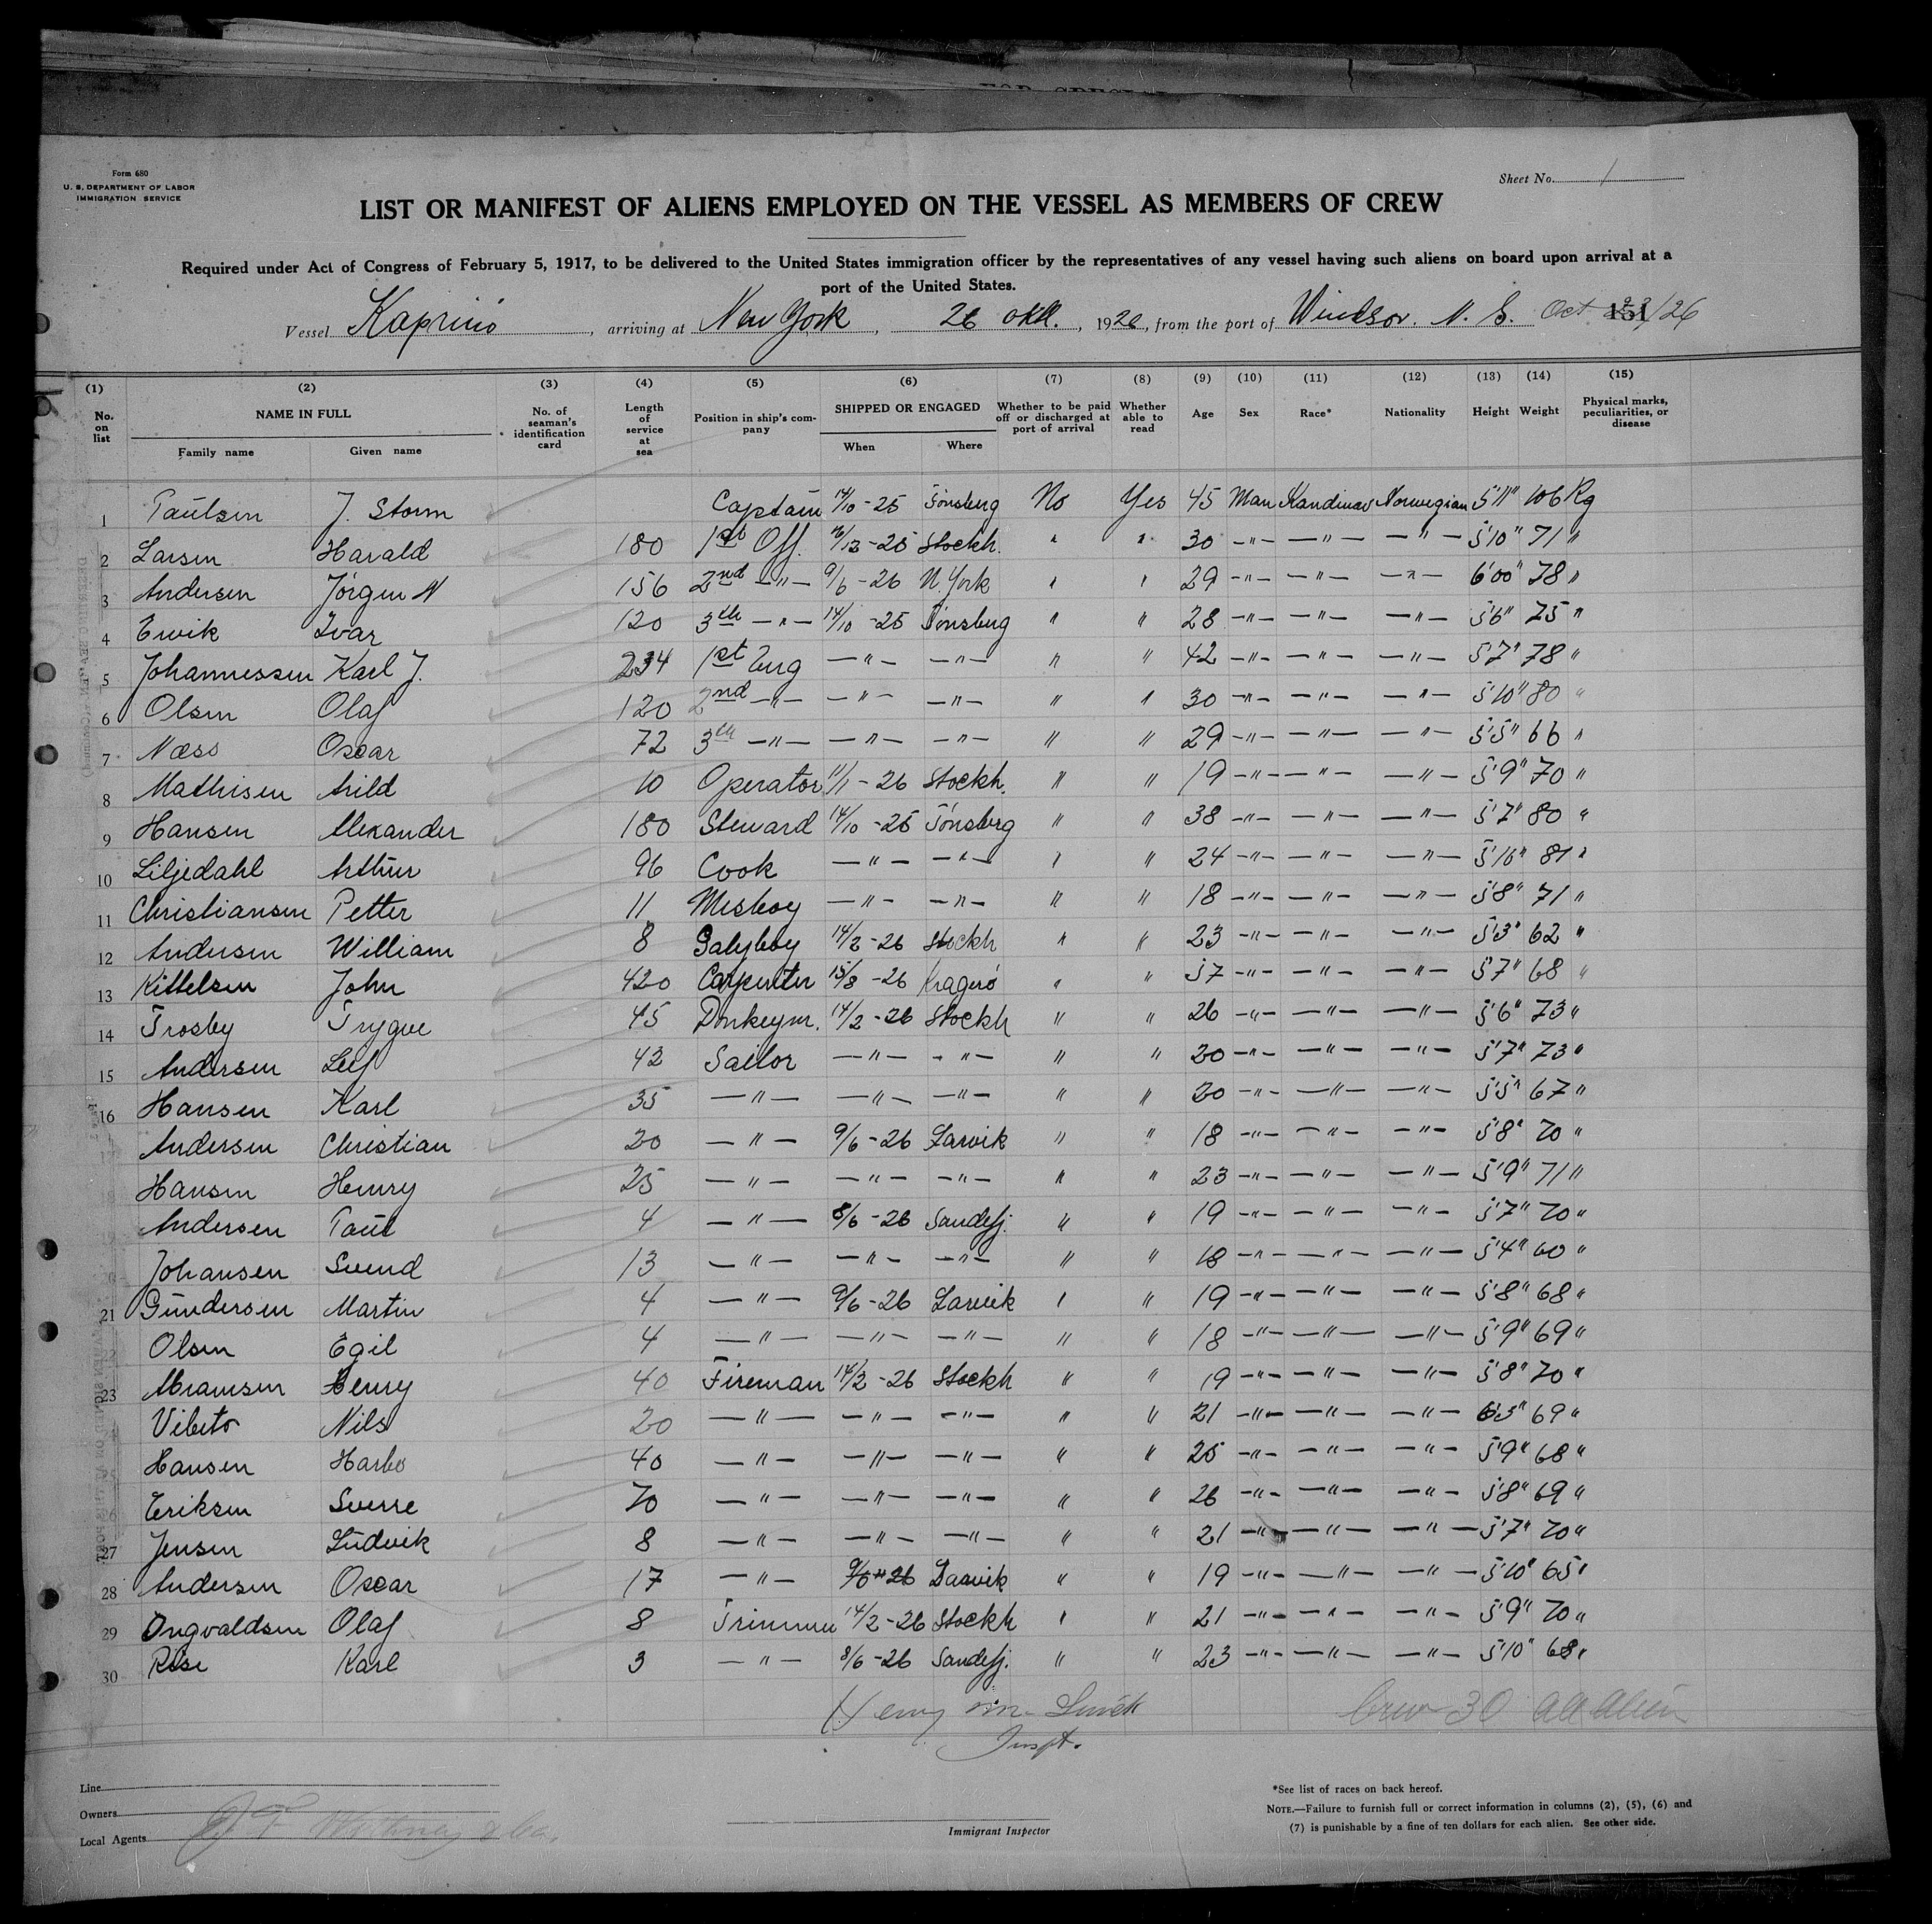 Form 680
U. S. DEPARTMENT OF LABOR
IMMIGRATION SERVICE
Sheet No. 1
LIST OR MANIFEST OF ALIENS EMPLOYED ON THE VESSEL AS MEMBERS OF CREW
Required under Act of Congress of February 5, 1917, to be delivered to the United States immigration officer by the representatives of any vessel having such aliens on board upon arrival at a
port of the United States.
Vessel Kaprino, arriving at New York, 26 okt., 1926, from the port of Windsor. N. S. Oct 23/26
151
(1) (2) (3) (4) (5) (6) (7) (8) (9) (10) (11) (12) (13) (14) (15)
No. on list NAME IN FULL Family name Given name No. of seaman's identification card Length of service at sea Position in ship's company SHIPPED OR ENGAGED When Where Whether to be paid off or discharged at port of arrival Whether able to read Age Sex Race* Nationality Height Weight Physical marks, peculiarities, or disease
1 Paulsen J. Storm Captain 14/10 -25 Tönsberg No Yes 45 Man Skandinav Norwegian 5'11" 106 Kg
2 Larsen Harald 180 1st Off. -25 Stockh. " " 30 -"- -"- -"- 5'10" 71 "
3 Andersen Jörgen N 156 2nd -"- 9/6 -26 N. York " " 29 -"- -"- -"- 6'00" 78 "
4 Ervik Ivar 120 3th -"- 14/10 -25 Tönsberg " " 28 -"- -"- -"- 5'6" 75 "
5 Johannessen Karl J. 234 1st Eng -"- -"- " " 42 -"- -"- -"- 5'7" 78 "
6 Olsen Olaf 120 2nd -"- -"- -"- " " 30 -"- -"- -"- 5'10" 80 "
7 Næss Oscar 72 3th -"- -"- -"- " " 29 -"- -"- -"- 5'5" 66 "
8 Mathisen Arild 10 Operator 11/1 -26 Stockh. " " 19 -"- -"- -"- 5'9" 70 "
9 Hansen Alexander 180 Steward 14/10 -25 Tönsberg " " 38 -"- -"- -"- 5'7" 80 "
10 Liljedahl Arthur 96 Cook -"- -"- " " 24 -"- -"- -"- 5'10" 81 "
11 Christiansen Petter 11 Mesboy -"- -"- " " 18 -"- -"- -"- 5'8" 71 "
12 Andersen William 8 Galyboy 14/2 -26 Stockh " " 23 -"- -"- -"- 5'3" 62 "
13 Kittelsen John 420 Carpenter 15/8 -26 Kragerö " " 57 -"- -"- -"- 5'7" 68 "
14 Trosby Trygve 45 Donkeym. 14/2 -26 Stockh " " 26 -"- -"- -"- 5'6" 73 "
15 Andersen Leif 42 Sailor -"- -"- " " 20 -"- -"- -"- 5'7" 73 "
16 Hansen Karl 35 -"- -"- -"- " " 20 -"- -"- -"- 5'5" 67 "
Andersen Christian 20 -"- 9/6 -26 Larvik " " 18 -"- -"- -"- 5'8" 70 "
Hansen Henry 25 -"- -"- -"- " " 23 -"- -"- -"- 5'9" 71 "
Andersen Paul 4 -"- 8/6 -26 Sandefj. " " 19 -"- -"- -"- 5'7" 70 "
Johansen Svend 13 -"- -"- -"- " " 18 -"- -"- -"- 5'4" 60 "
21 Gundersen Martin 4 -"- 9/6 -26 Larvik " " 19 -"- -"- -"- 5'8" 68 "
Olsen Egil 4 -"- -"- -"- " " 18 -"- -"- -"- 5'9" 69 "
23 Abramsen Henry 40 Fireman 14/2 -26 Stockh " " 19 -"- -"- -"- 5'8" 70 "
Vibeto Nils 20 -"- -"- -"- " " 21 -"- -"- -"- 6'3" 69 "
25 Hansen Harbo 40 -"- -"- -"- " " 25 -"- -"- -"- 5'9" 68 "
Eriksen Sverre 70 -"- -"- -"- " " 26 -"- -"- -"- 5'8" 69 "
27 Jensen Ludvik 8 -"- -"- -"- " " 21 -"- -"- -"- 5'7" 70 "
28 Andersen Oscar 17 -"- 9/6 -26 Larvik " " 19 -"- -"- -"- 5'10" 65 "
29 Ingvaldsen Olaf 8 Trimmer 14/2 -26 Stockh " " 21 -"- -"- -"- 5'9" 70 "
30 Röse Karl 3 -"- 8/6 -26 Sandefj. " " 23 -"- -"- -"- 5'10" 68 "
Henry Smith
Inspt.
Crew 30 all alien
Line
Owners
Local Agents
Immigrant Inspector
*See list of races on back hereof.
NOTE.—Failure to furnish full or correct information in columns (2), (5), (6) and
(7) is punishable by a fine of ten dollars for each alien. See other side.